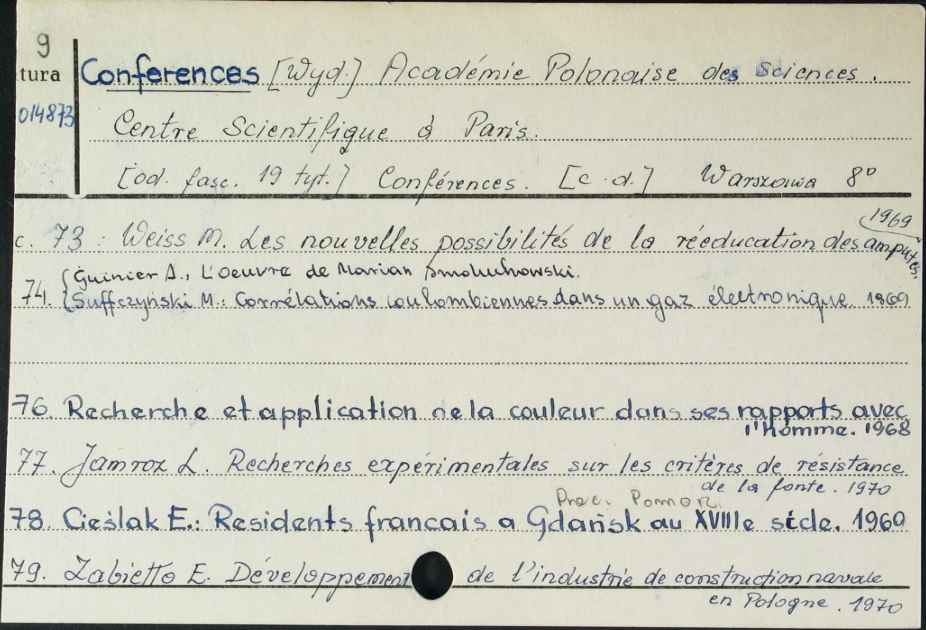 9
tura Conferences [Wyd.] Académie Polonaise des Sciences.
014873 Centre Scientifique à Paris.
[od. fasc. 19 tyt.] Conférences. [c.d.] Warszawa 8°
c. 73 : Weiss M. Les nouvelles possibilités de la rééducation des amputés, 1969
Guinier A., L'Oeuvre de Marian Smoluchowski.
74. Suffczyński M.: Corrélations coulombiennes dans un gaz électronique 1969
76. Recherche et application de la couleur dans ses rapports avec
l'homme. 1968
77. Jamroz L. Recherches expérimentales sur les critères de résistance
de la fonte. 1970
Prac. Pomorz.
78. Cieślak E.: Residents francais a Gdańsk au XVIIIe siècle. 1969
79. Żabiełło E. Développement de l'industrie de construction navale
en Pologne. 1970